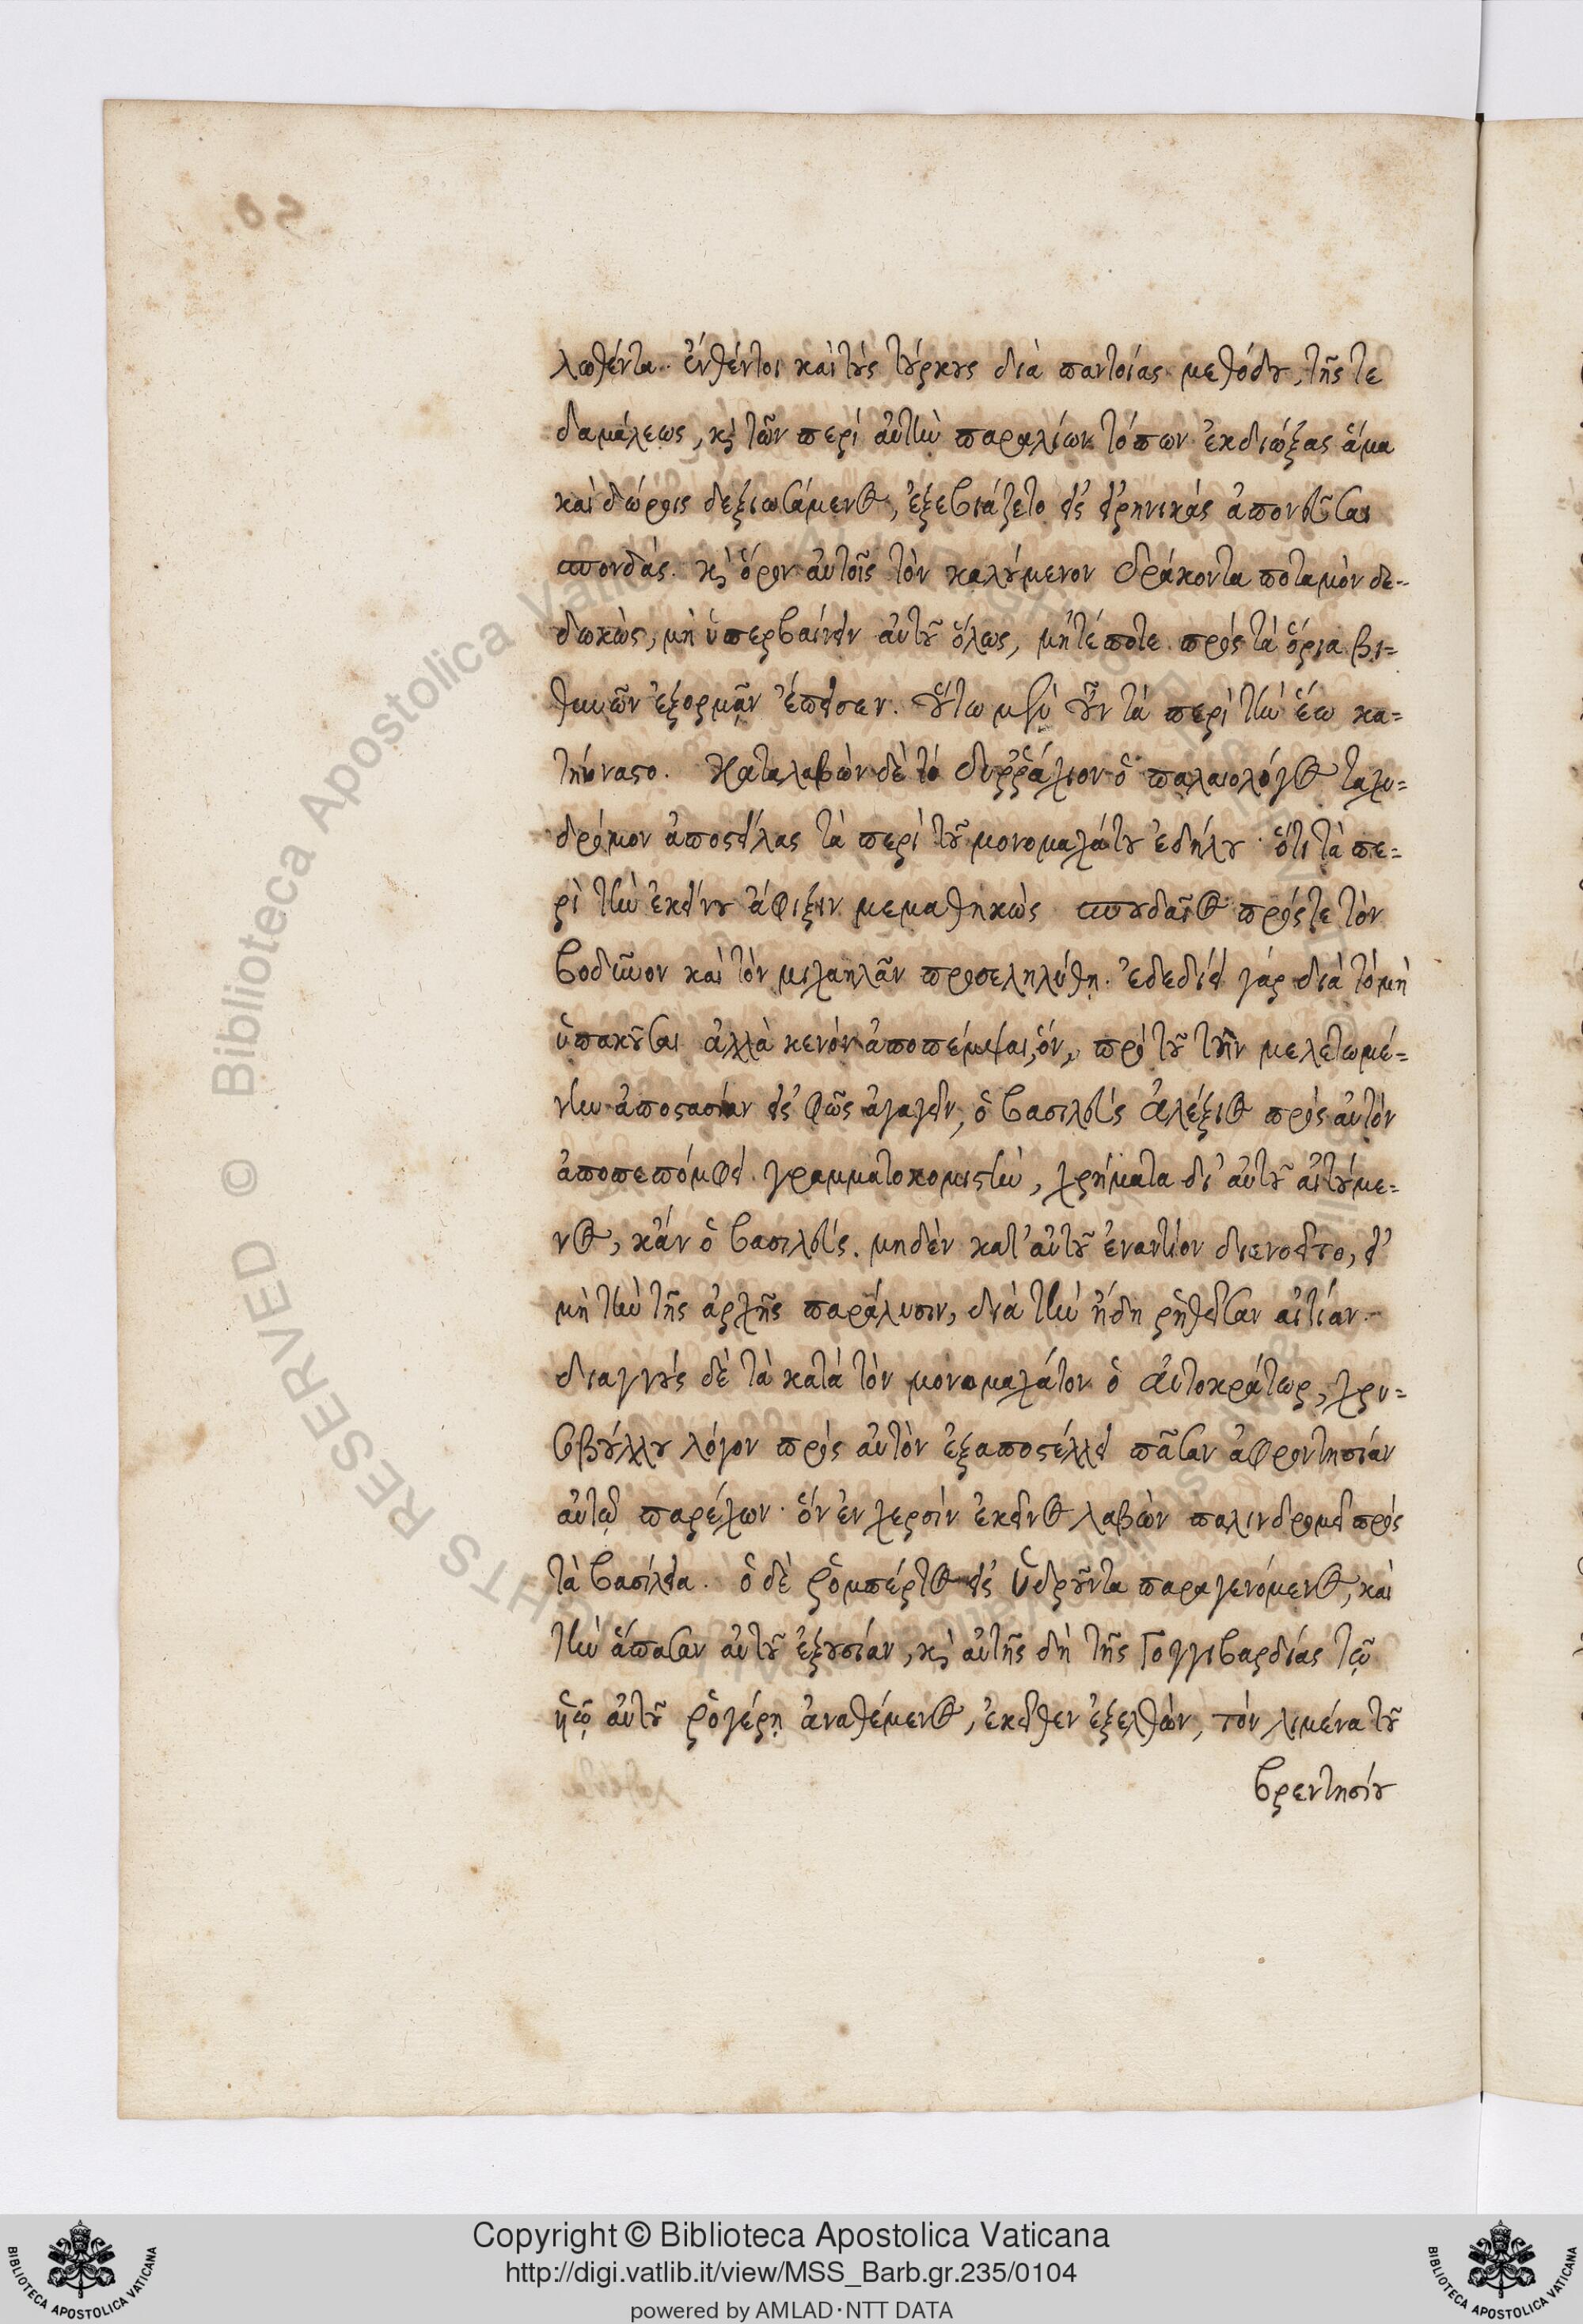 λωθέντα. ἐνθέντοι καὶ τοὺς τούρκους διὰ παντοίας μεθόδου, τῆς τε
δαμάλεως, κὶ τῶν περὶ αὐτὴν παραλίων τόπων ἐκδιώξας ἅμα
καὶ δώροις δεξιωσάμενος, ἐξεβιάζετο εἰς εἰρηνικὰς ἀπονεῦσαι
σπονδάς. κὶ ὅρον αὐτοῖς τὸν καλούμενον δράκοντα ποταμὸν δε-
δωκὼς, μὴ ὑπερβαίνειν αὐτοῦ ὅλως, μητέποτε πρὸς τὰ ὅρια βι=
θυνῶν ἐξορμᾶν ἔπεισεν. οὕτω μὲν οὖν τὰ περὶ τὴν ἕω κα=
τηύναστο. Καταλαβὼν δὲ τὸ δυῤῥάχιον ὁ παλαιολόγος ταχυ=
δρόμον ἀποστείλας τὰ περὶ τοῦ μονομαχάτου ἐδήλου· ὅτι τὰ πε=
ρὶ τὴν ἐκείνου ἄφιξιν μεμαθηκὼς σπουδαῖος πρός τε τὸν
βοδῖνον καὶ τὸν μιχαηλᾶν προσεληλύθῃ. ἐδεδίει γάρ διὰ τὸ μὴ
ὑπακοῦσαι ἀλλὰ κενὸν ἀποπέμψαι, ὃν, πρὸ τοῦ τὴν μελετωμέ=
νην ἀποστασίαν εἰς φῶς ἀγαγεῖν, ὁ βασιλεὺς Ἀλέξιος πρὸς αὐτὸν
ἀποπεπόμφει γραμματοκομιστὴν, χρήματα δι' αὐτοῦ αἰτούμε=
νος, κἂν ὁ βασιλεὺς. μηδὲν κατ' αὐτοῦ ἐναντίον διενοεῖτο, εἰ
μὴ τὴν τῆς ἀρχῆς παράλυσιν, διὰ τὴν ἤδη ῥηθεῖσαν αἰτίαν.
διαγνοὺς δὲ τὰ κατὰ τὸν μονομαχάτον ὁ Αὐτοκράτωρ, χρυ=
σβούλλου λόγον πρὸς αὐτὸν ἐξαποστέλλει πᾶσαν ἀφροντησίαν
αὐτῷ παρέχων· ὃν ἐν χερσὶν ἐκεῖνος λαβὼν παλινδρομεῖ πρὸς
τὰ βασίλεια. ὁ δὲ ῥομπέρτος εἰς ὑδροῦντα παραγενόμενος, καὶ
τὴν ἅπασαν αὐτοῦ ἐξουσίαν, κὶ αὐτῆς δὴ τῆς Γογγιβαρδίας τῷ
ὑῷ αὐτοῦ ῥογέρῃ ἀναθέμενος, ἐκεῖθεν ἐξελθὼν, τὸν λιμένα τοῦ
βρεντησίου
Copyright © Biblioteca Apostolica Vaticana
http://digi.vatlib.it/view/MSS_Barb.gr.235/0104
powered by AMLAD·NTT DATA